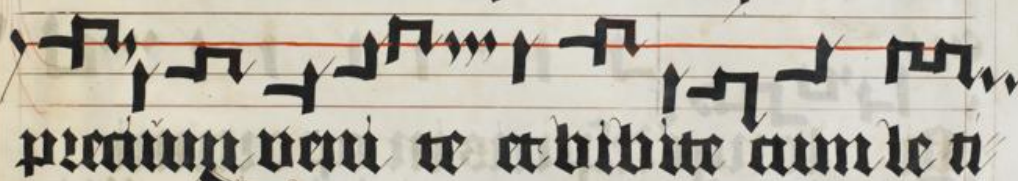 precium veni te et bibite cum le ti